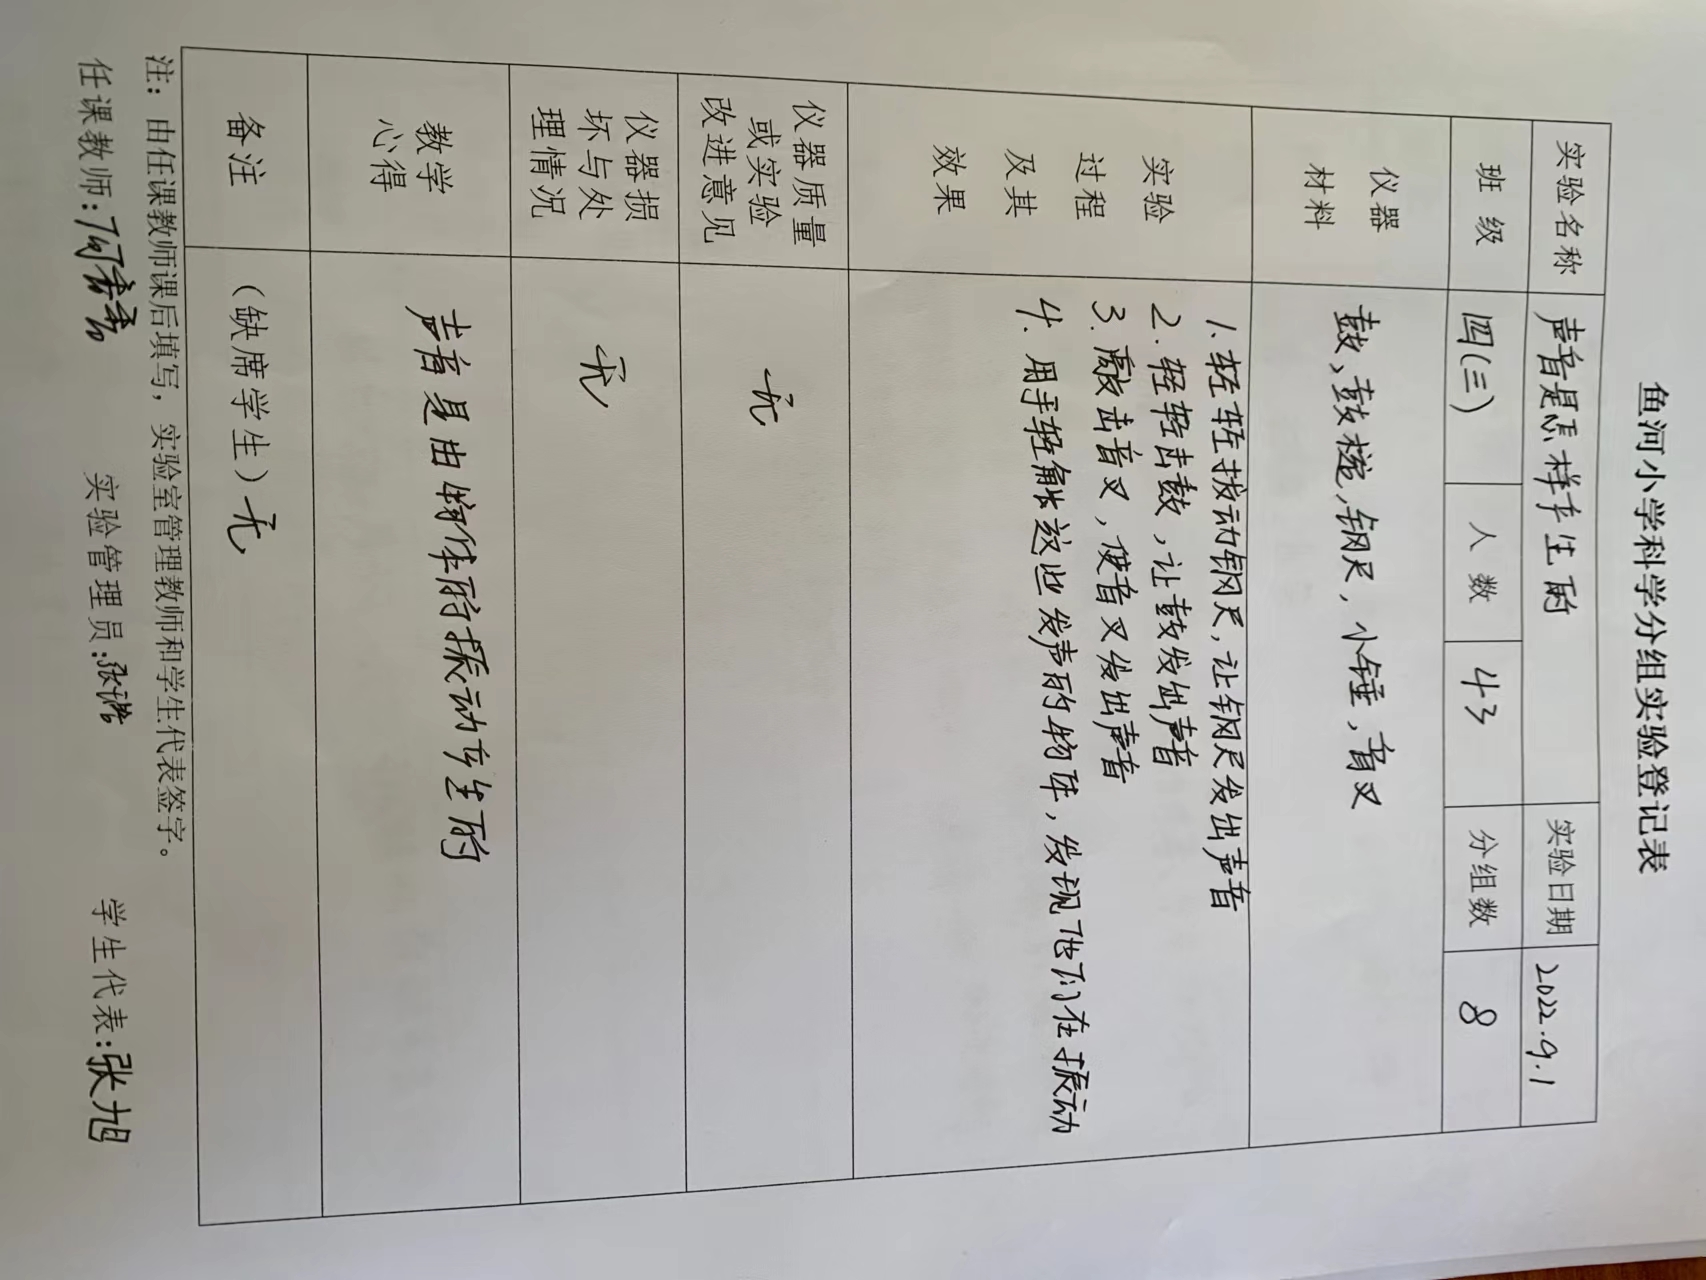 鱼河小学科学分组实验登记表
实验名称 声音是怎样产生的 实验日期 2022.9.1
班级 四(三) 人数 43 分组数 8
仪器
材料
鼓,鼓槌,钢尺,小锤,音叉
实验
过程
及其
效果
1.轻轻拨动钢尺,让钢尺发出声音
2.轻轻击鼓,让鼓发出声音
3.敲击音叉,使音叉发出声音
4.用手轻触这些发声的物体,发现它们在振动
仪器质量
或实验
改进意见
无
仪器损
坏与处
理情况
无
教学
心得
声音是由物体的振动产生的
备注 (缺席学生)无
注:由任课教师课后填写,实验室管理教师和学生代表签字。
任课教师: 实验管理员:张 学生代表:张旭